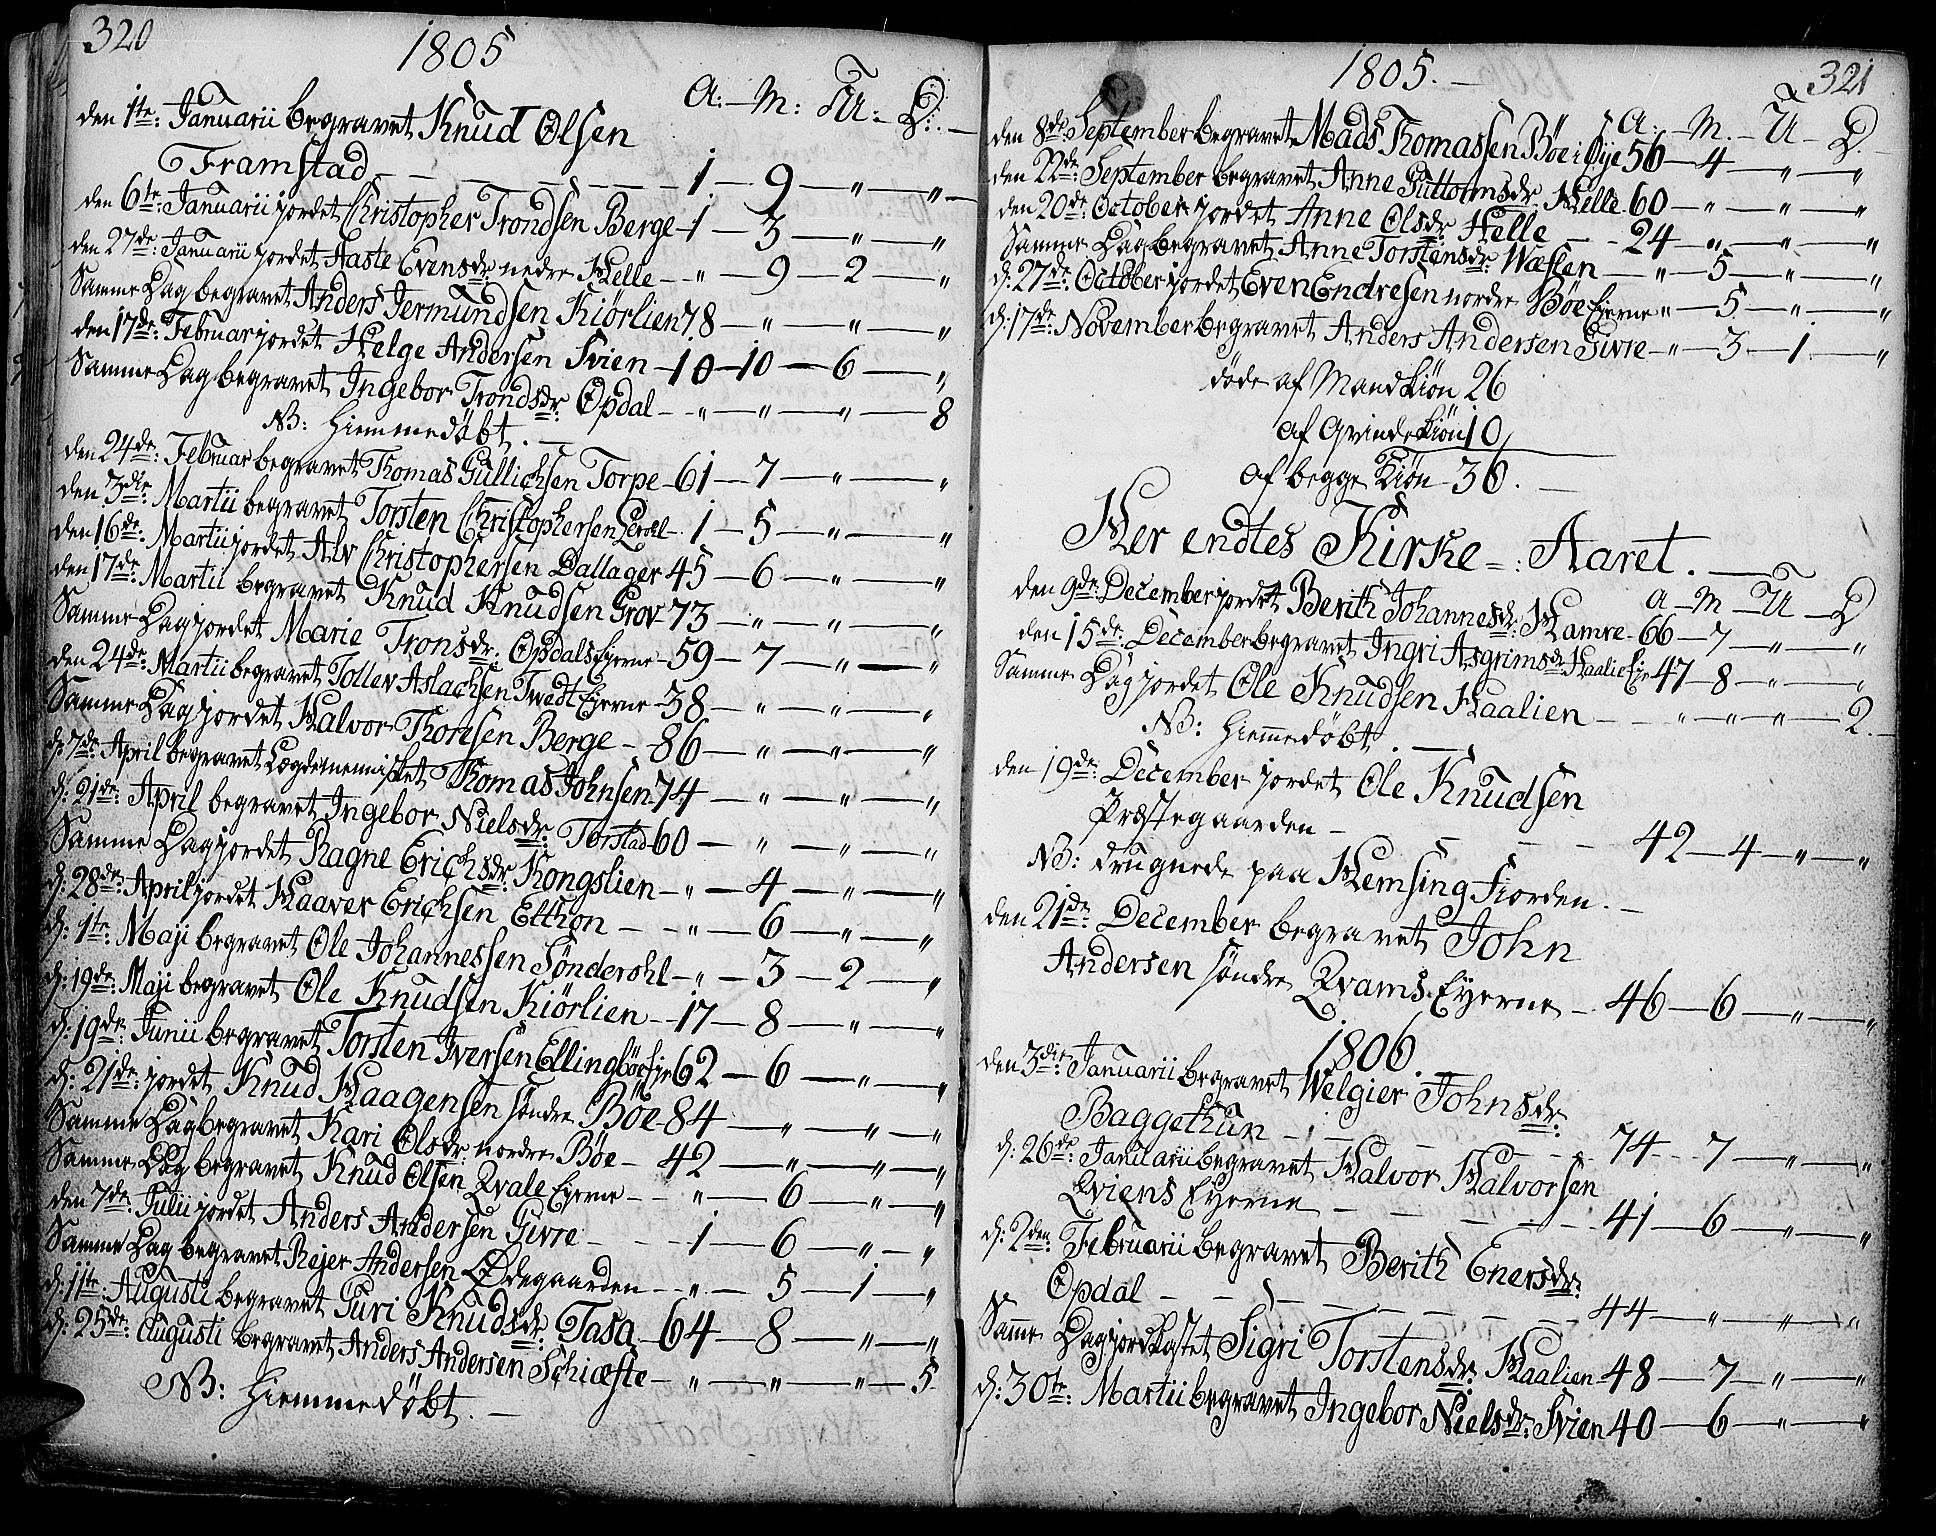 320
1805
A: — M: — U: — D: —
den 1te: Januarii begravet Knud Olsen
Framstad — — — — — 1 — 9 — " — " —
den 6te: Januarii jordet Christopher Trondsen Berge — 1 — 3 — " — "
den 27de: Januarii jordet Aaste Evensdr: nedre Helle — " — 9 — 2 — "
Samme Dag begravet Anders Jermundsen Kiörlien 78 — " — " — "
den 17de: Februar jordet Helge Andersen Svien — 10 — 10 — 6 — "
Samme Dag begravet Ingebor Trondsdr: Opdal — " — " — " — 8
NB: Hiemmedöbt. —
den 24de: Februar begravet Thomas Gullichsen Torpe — 61 — 7 — " — "
den 3die: Martii begravet Torsten Christophersen — 1 — 5 — " — "
den 16de: Martii jordet Alv Christophersen Dallager 45 — 6 — " — "
den 17de: Martii begravet Knud Knudsen Grov 73 — " — " — "
Samme Dag jordet Marie Tronsdr: Opdals Ejerne — 59 — 7 — " — "
den 24de: Martii begravet Tollev Aslachsen Twedt Ejerne — 38 — " — " — "
Samme Dag jordet Halvor Thoresen Berge — 86 — " — " — "
d: 7de: April begravet Lægdemennisket Thomas Johnsen 74 — " — " — "
d: 21de: April begravet Ingebor Nielsdr: Torstad 60 — " — " — "
Samme Dag jordet Ragne Erichsdr: Kongslien — " — 4 — " — "
d: 28de: April jordet Haaver Erichsen Etthon — " — 6 — " — "
d: 1te: Maji begravet Ole Johannessen Sönderohl — " — 3 — 2 — "
d: 19de: Maji begravet Ole Knudsen Kiörlien — 17 — 8 — " — "
d: 19de: Junii begravet Torsten Iversen Ellingböe Eje 62 — 6 — " — "
d: 21de: jordet Knud Haagensen söndre Böe 84 — " — " — "
Samme Dag begravet Kari Olsdr: nordre Böe — 42 — " — " — "
Samme Dag begravet Knud Olsen Qvale Ejerne — " — 6 — " — "
den 7de: Julii jordet Anders Andersen Givre — 1 — 6 — " — "
Samme Dag begravet Rejer Andersen Ödegaarden — " — 5 — 1 — "
d: 11te: Augusti begravet Guri Knudsdr: Tasa — 64 — 8 — " — "
d: 25de: Augusti begravet Anders Andersen Schiæfte — " — " — " — 5
NB: Hiemmedöbt. —
1805. —
321
A: — M. — U — D.
den 8de: September begravet Mads Thomassen Böe i Öye 56 — 4 — " — "
den 22de: September begravet Anne Guttormsdr: Helle 60 — " — " — "
den 20de: October jordet Anne Olsdr: Helle — 24 — " — " — "
Samme Dag begravet Anne Torstensdr: Wæslen — " — 5 — " — "
d: 27de: October jordet Even Endresen nordre Böe Ejerne " — 5 — " — "
d: 17de: November begravet Anders Andersen Givre — " — 3 — 1 — "
döde af Mandkiön 26
af Qvindekiön 10
af begge Kiön 36. —
Her endtes Kirke-: Aaret. —
A — M — U — D
den 9de: December jordet Berith Johannesdr: Hamre — 66 — 7 — " — "
den 15de: December begravet Ingri Asgrimsdr: Haalie Eje 47 — 8 — " — "
Samme Dag jordet Ole Knudsen Haalien — " — " — " — 2. —
NB: Hiemmedöbt. —
den 19de: December jordet Ole Knudsen
Præstegaarden — — — 42 — 4 — " — "
NB: drugnede paa Hemsing Fiorden. —
den 21de: December begravet John
Andersen söndre Qvams Eyerne — 46 — 6 — " — "
1806.
den 3die: Januarii begravet Welgier Johnsdr:
Baggethun — — — — 74 — 7 — " — "
d: 26de: Januarii begravet Halvor Halvorsen
Qviens Eyerne — — — — 41 — 6 — " — "
d: 2den: Februarii begravet Berith Enersdr:
Opdal — — — — — 44 — " — " — "
Samme Dag jordkastet Sigri Torstensdr: Haalien 48 — 7 — " — "
d: 30te: Martii begravet Ingebor Nielsdr: Svien 40 — 6 — " — "